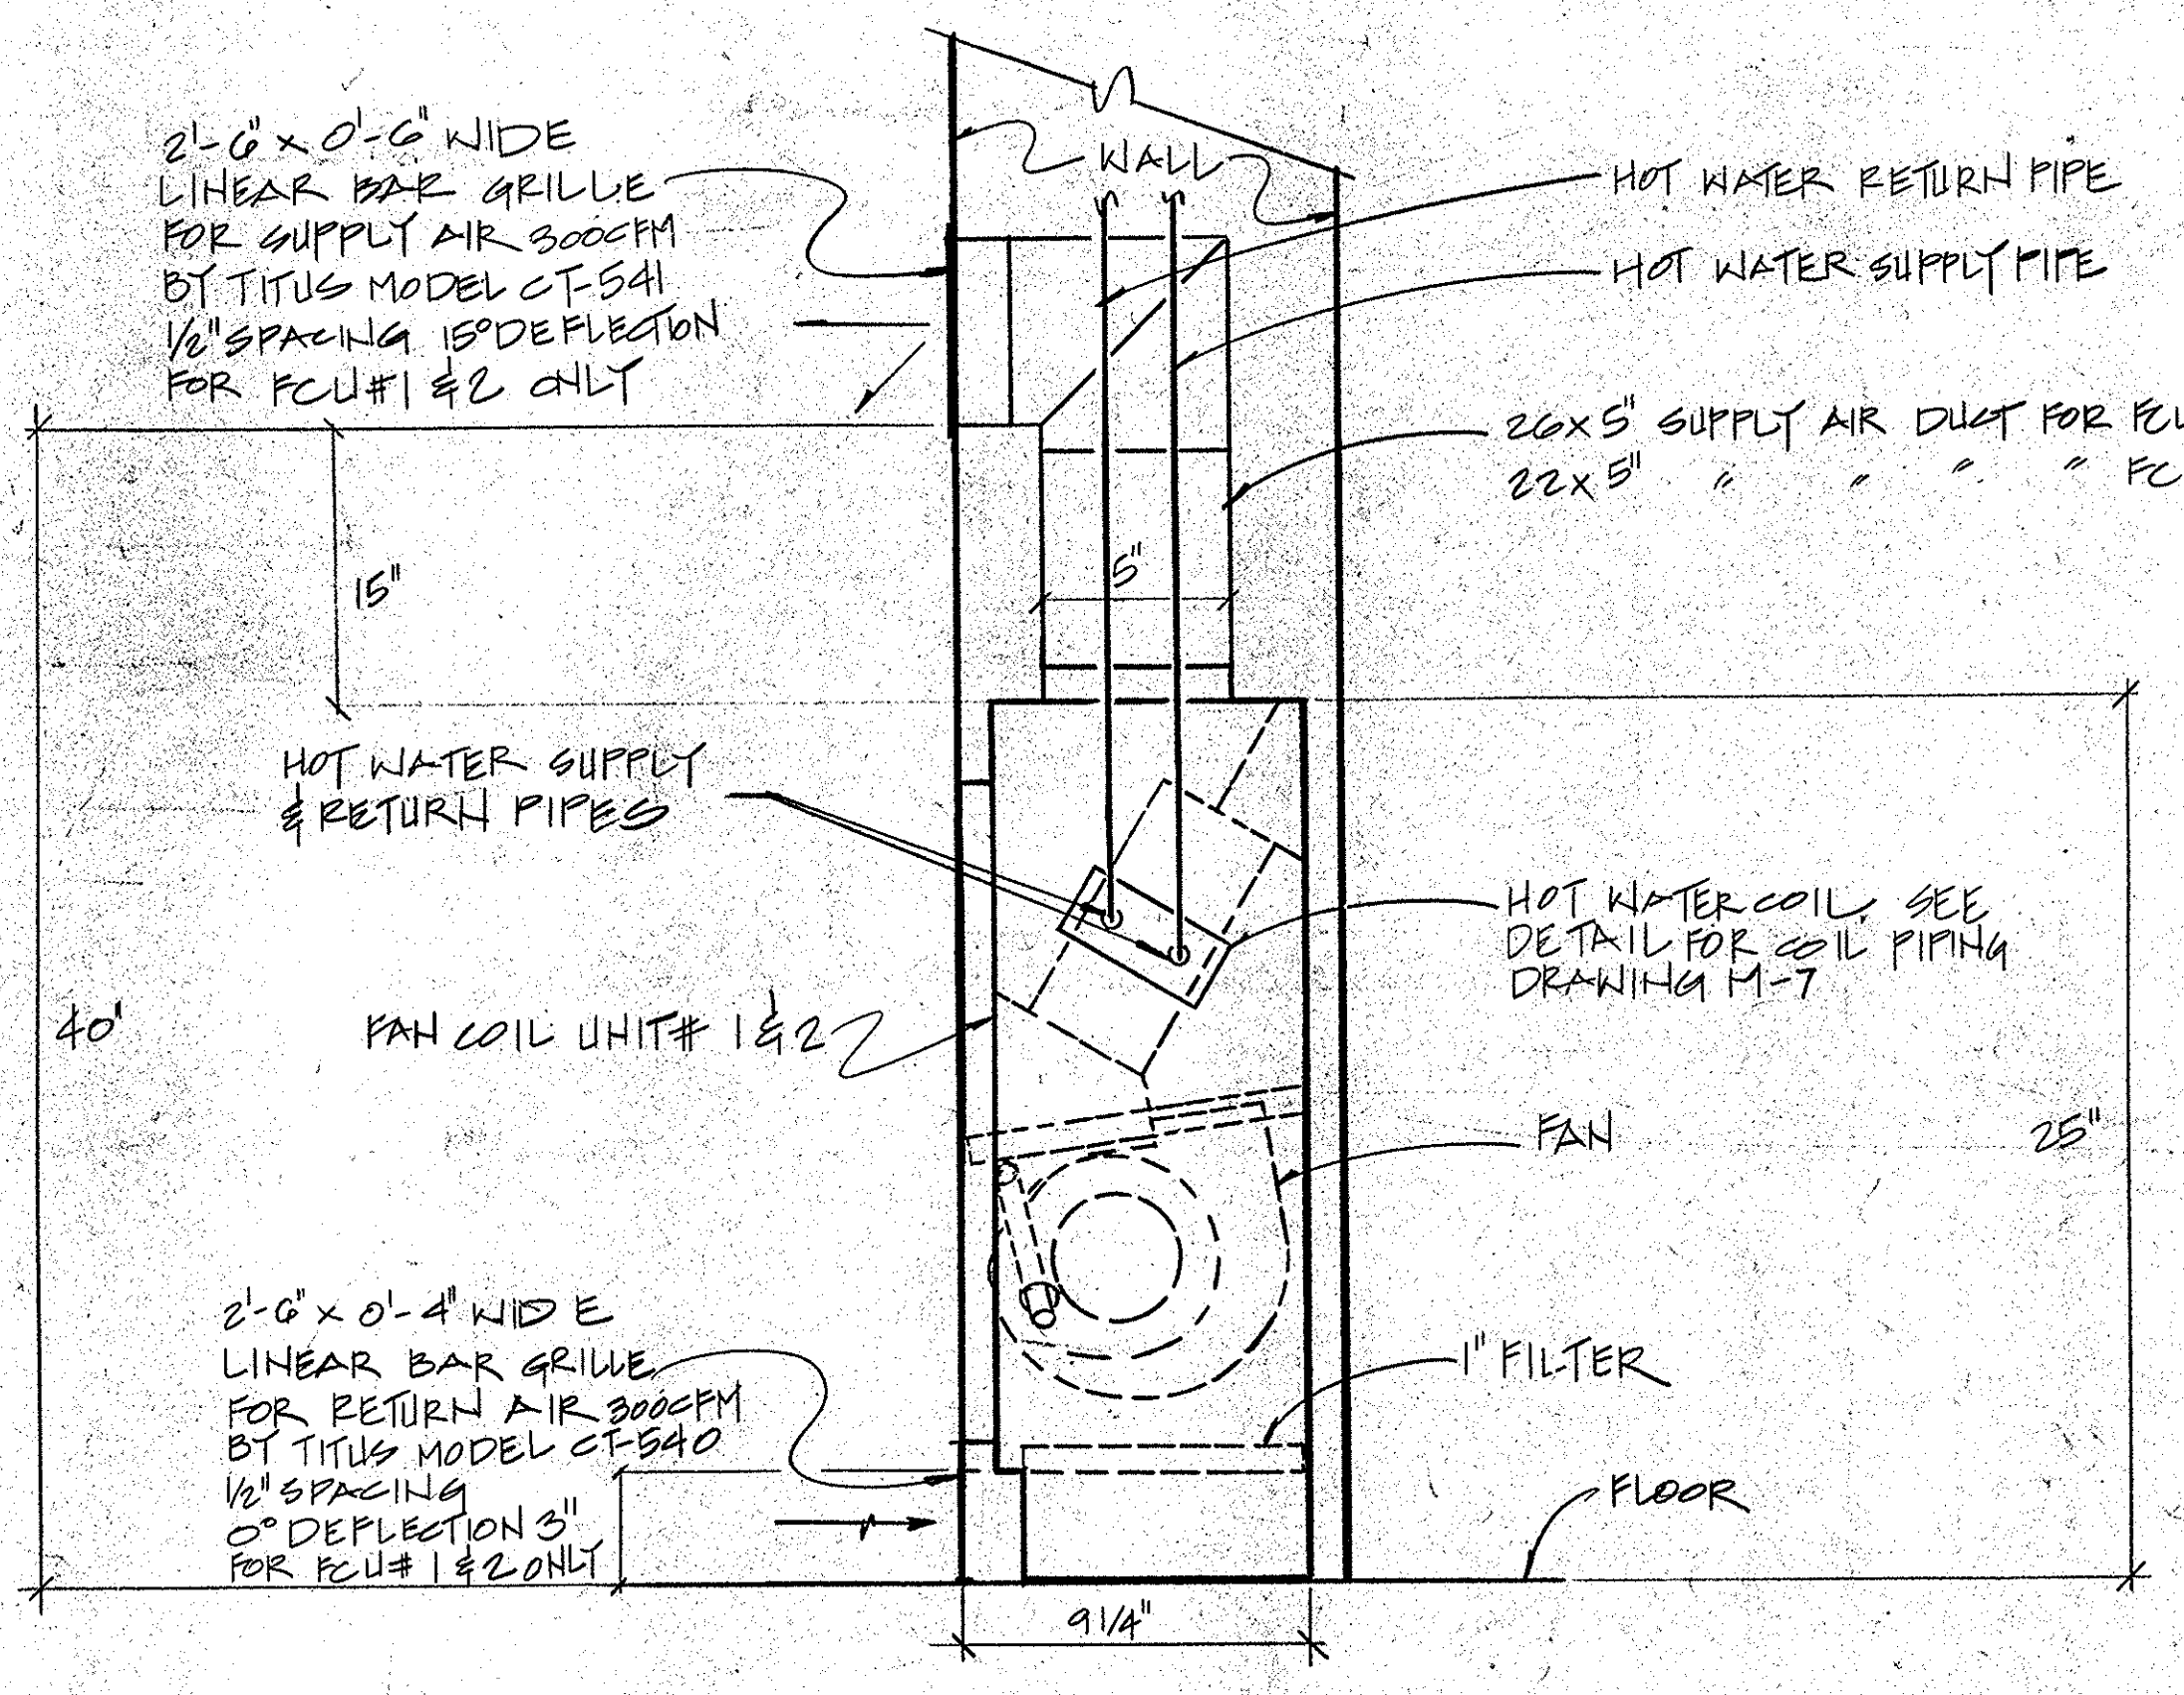 2'-6" x 0'-6" WIDE
LINEAR BAR GRILLE
FOR SUPPLY AIR 300CFM
BY TITUS MODEL CT-541
1/2" SPACING 15° DEFLECTION
FOR FCU#1 & 2 ONLY
WALL
HOT WATER RETURN PIPE
HOT WATER SUPPLY PIPE
26x5" SUPPLY AIR DUCT FOR FCU
22x5" " " " " FC
15"
5"
HOT WATER SUPPLY
& RETURN PIPES
HOT WATER COIL. SEE
DETAIL FOR COIL PIPING
DRAWING M-7
40'
FAN COIL UNIT# 1 & 2
FAN
25"
2'-6" x 0'-4" WIDE
LINEAR BAR GRILLE
FOR RETURN AIR 300CFM
BY TITUS MODEL CT-540
1/2" SPACING
0° DEFLECTION 3"
FOR FCU# 1 & 2 ONLY
1" FILTER
FLOOR
9 1/4"